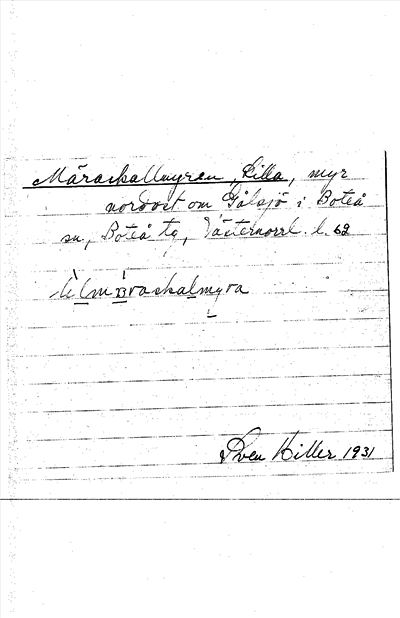 Märaskallmyren, Lilla, myr
nordost om Gålsjö i Boteå
sn, Boteå tg, Västernorrl. l. 62
Sven Hiller 1931